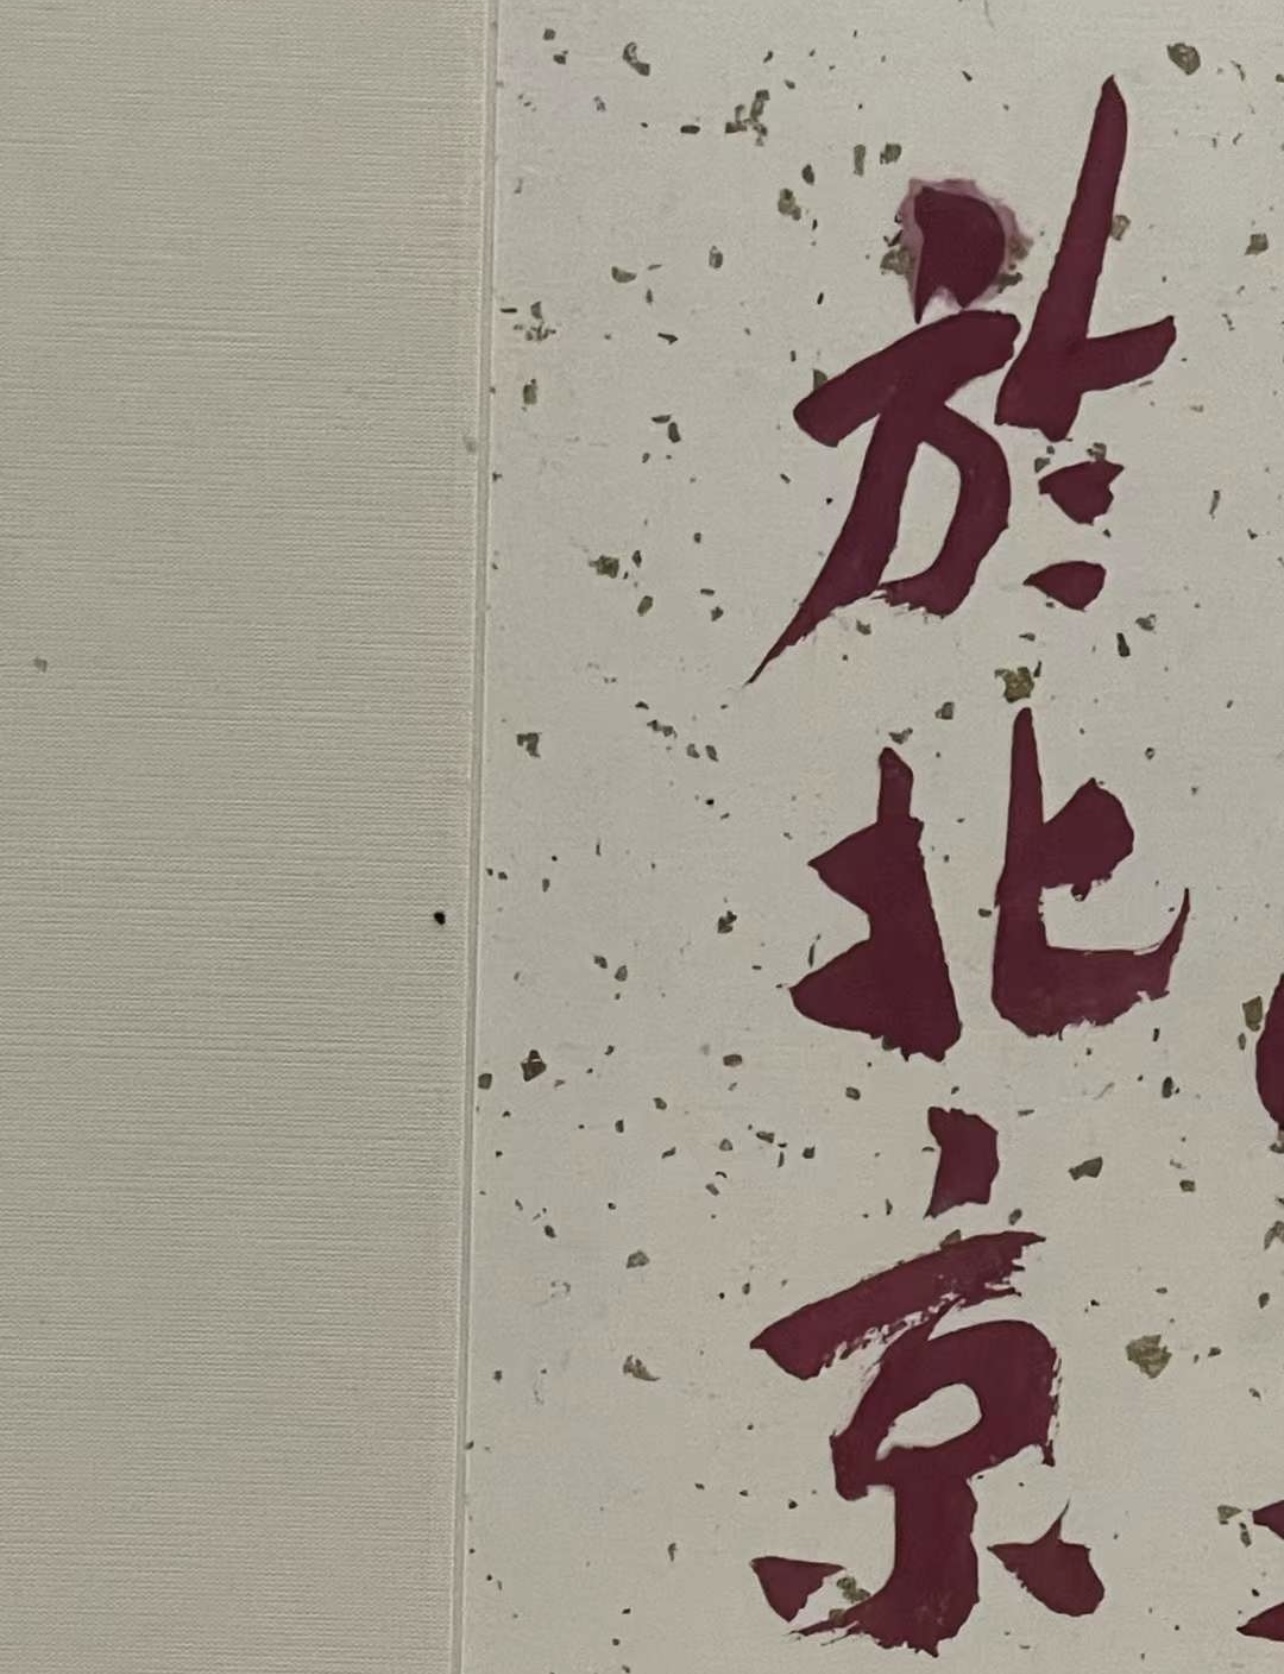 於北京